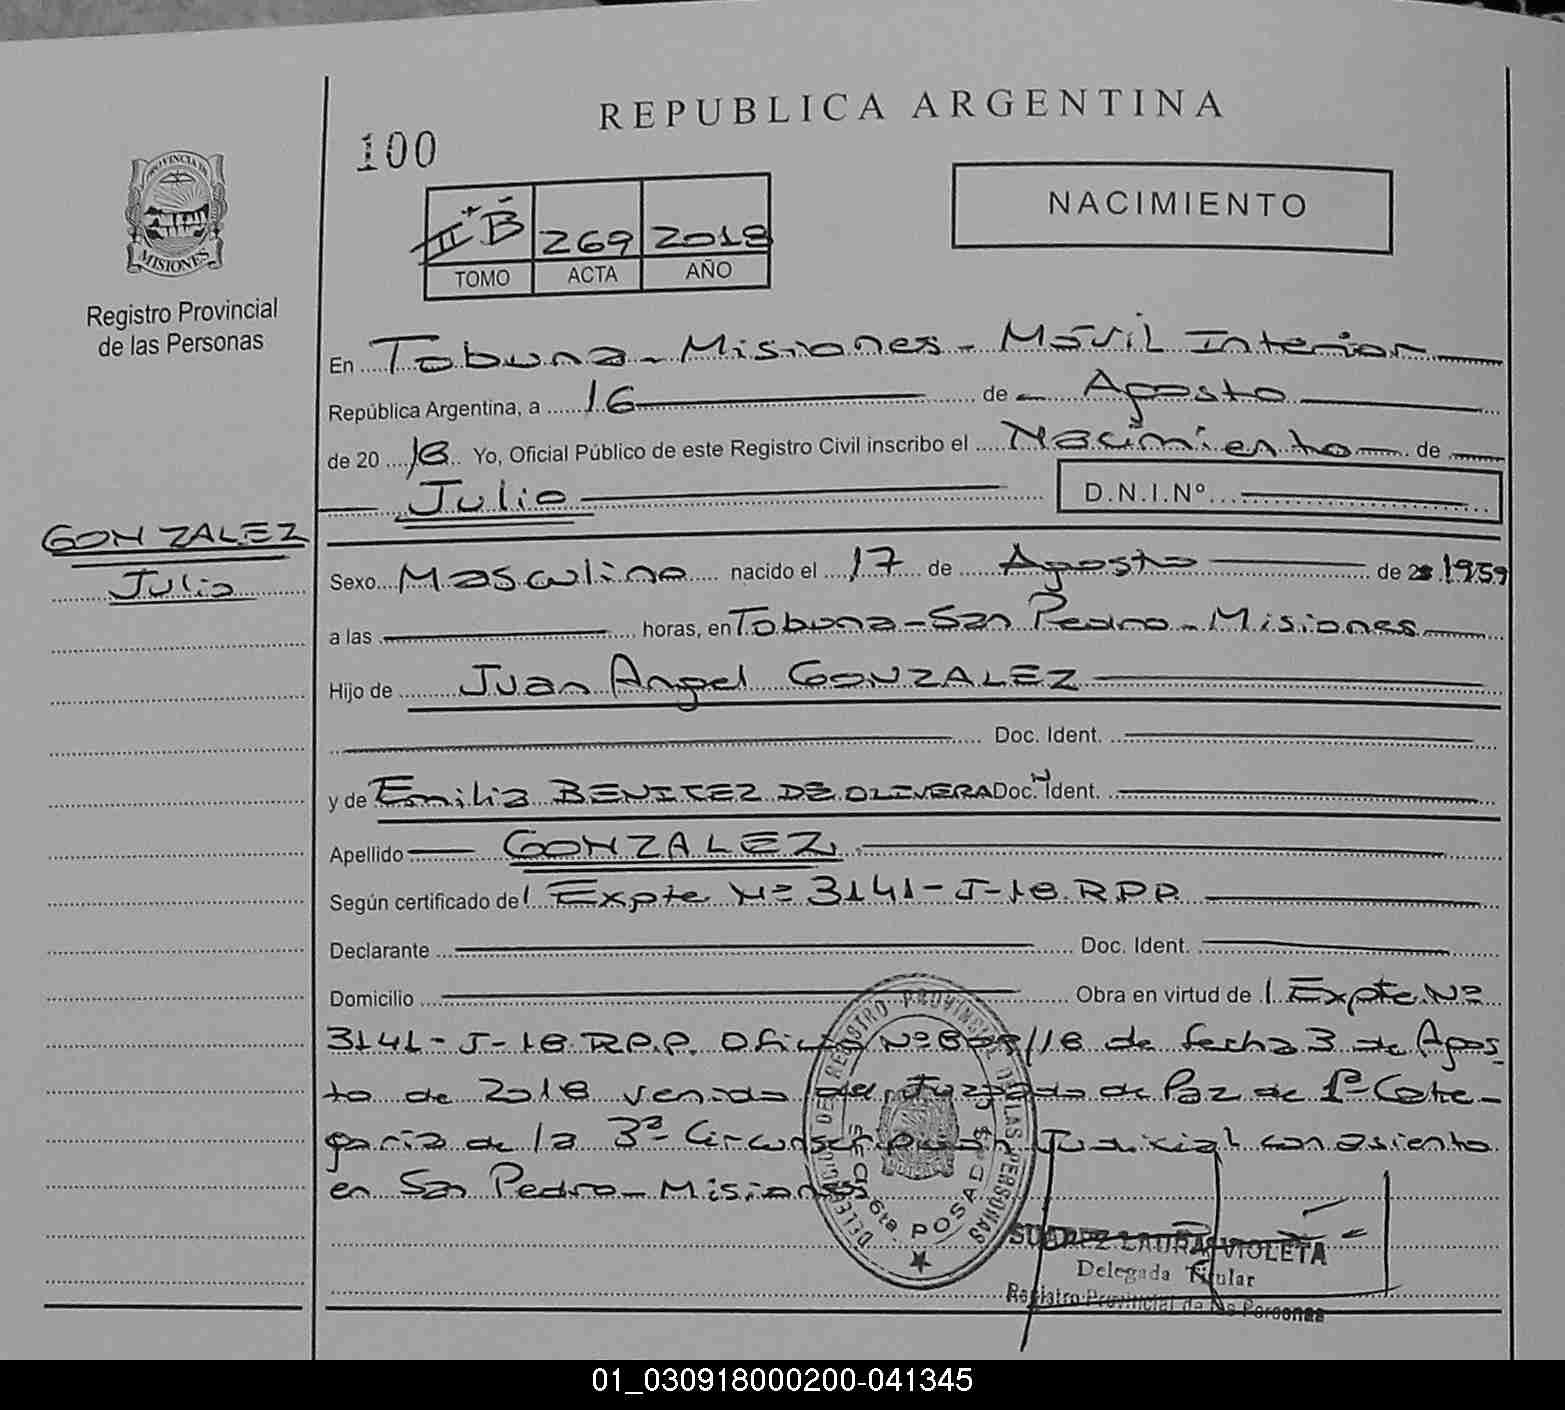 REPUBLICA ARGENTINA
100
PROVINCIA DE
MISIONES
Registro Provincial
de las Personas
II B 269 2018
TOMO ACTA AÑO
NACIMIENTO
En Tobuna - Misiones - Móvil Interior
República Argentina, a 16 de Agosto
de 20 18 Yo, Oficial Público de este Registro Civil inscribo el Nacimiento de
Julio
D.N.I.Nº
GONZALEZ
Julio
Sexo Masculino nacido el 17 de Agosto de 1959
a las horas, en Tobuna - San Pedro - Misiones
Hijo de Juan Angel GONZALEZ
Doc. Ident.
y de Emilia BENITEZ DE OLIVERA Doc. Ident.
Apellido GONZALEZ
Según certificado del Expte Nº 3141-J-18.R.P.P.
Declarante Doc. Ident.
Domicilio Obra en virtud de l Expte. Nº
3141-J-18.R.P.P. Oficio Nº /18 de fecha 3 de Agos-
to de 2018 venido del Juzgado de Paz de 1ª Cate-
goria de la 3ª Circunscripcion Judicial con asiento
en San Pedro - Misiones
DELEGACION DEL REGISTRO PROVINCIAL DE LAS PERSONAS
SECC. 6ta. POSADAS
SUAREZ LAURA VIOLETA
Delegada Titular
Registro Provincial de las Personas
01_030918000200-041345